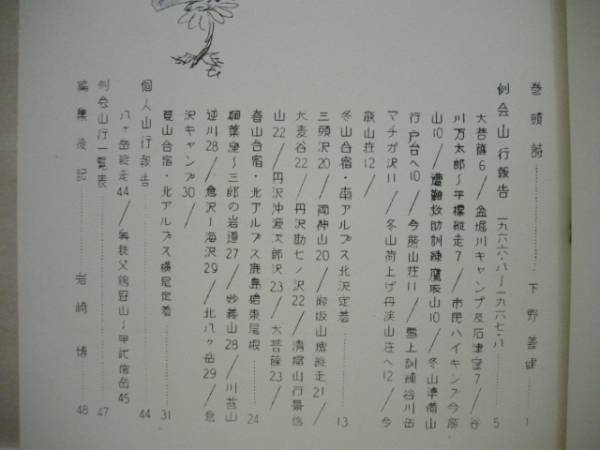 巻頭詩……下野善建 1
例会山行報告 一九六六・八〜一九六七・八 5
大菩薩6/金堀川キャンプ及石津窪7/谷
川万太郎〜平標縦走7/市民ハイキング今熊
山10/遭難救助訓練鷹取山10/冬山準備山
行戸台へ10/今熊山荘11/雪上訓練谷川岳
マチガ沢11/冬山荷上げ丹渓山荘へ12/今
熊山荘12/
冬山合宿・南アルプス北沢定着……13
三頭沢20/両神山20/御坂山塊縦走21/
大麦谷22/丹沢勘七ノ沢22/清掃山行景信
山22/丹沢沖源次郎沢23/大菩薩23/
春山合宿・北アルプス鹿島槍東尾根……24
稲葉窪〜三郎の岩道27/妙義山28/川苔山
逆川28/倉沢〜海沢29/北八ヶ岳29/倉
沢キャンプ30/
夏山合宿・北アルプス横尾定着……31
個人山行報告……44
八ヶ岳縦走44/奥秩父鶏冠山〜甲武信岳45
例会山行一覧表……47
編集後記……岩崎博 48